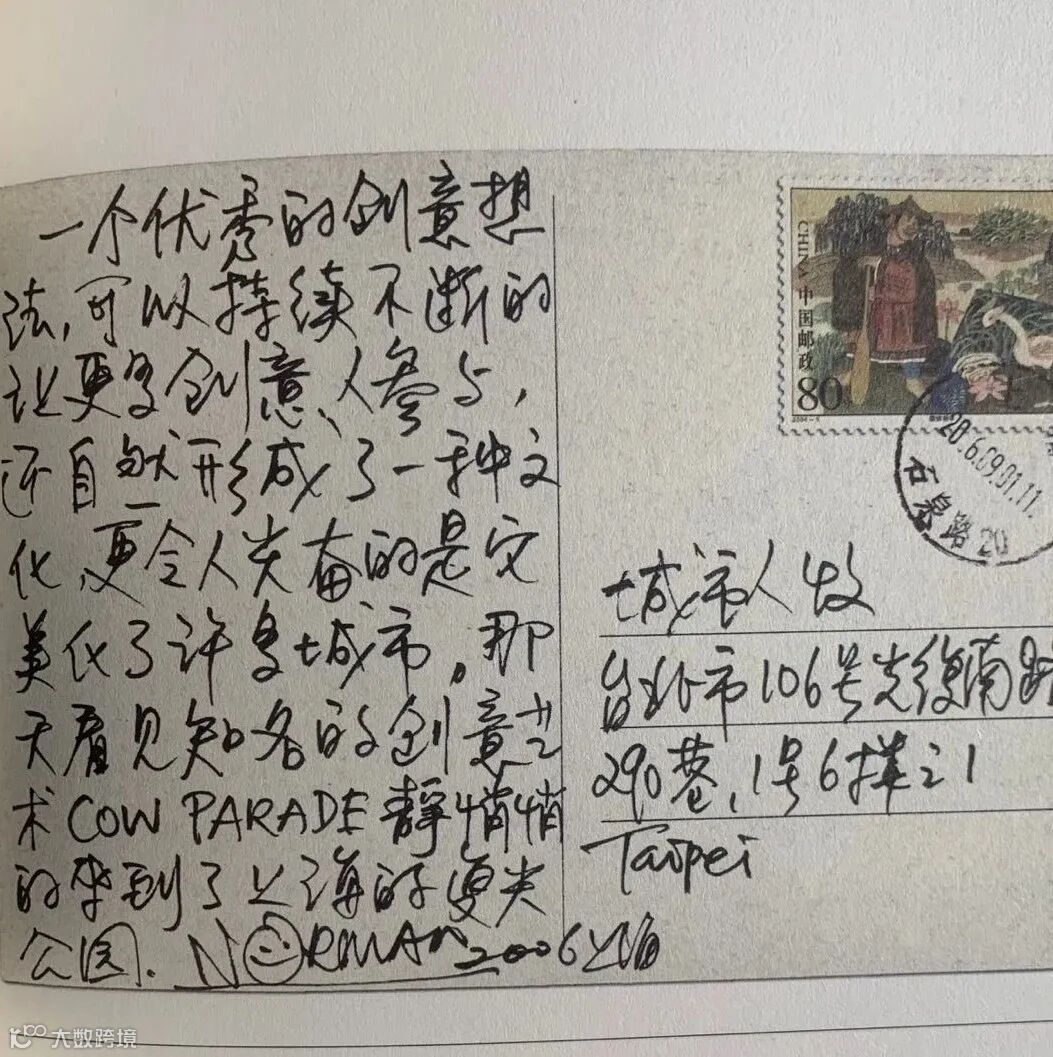 一个优秀的创意想
法,可以持续不断的
让更多创意人参与,
还自然形成了一种文
化,更令人兴奋的是它
美化了许多城市,那
天看见知名的创意艺
术COW PARADE静悄悄
的来到了上海的复兴
公园. NORMAN 2006上海
CHINA 中国邮政
80
20 6.09.01.11.
石泉路 20
城市人收
台北市106号光復南路
290巷,1号6楼之1
Taipei
大数跨境